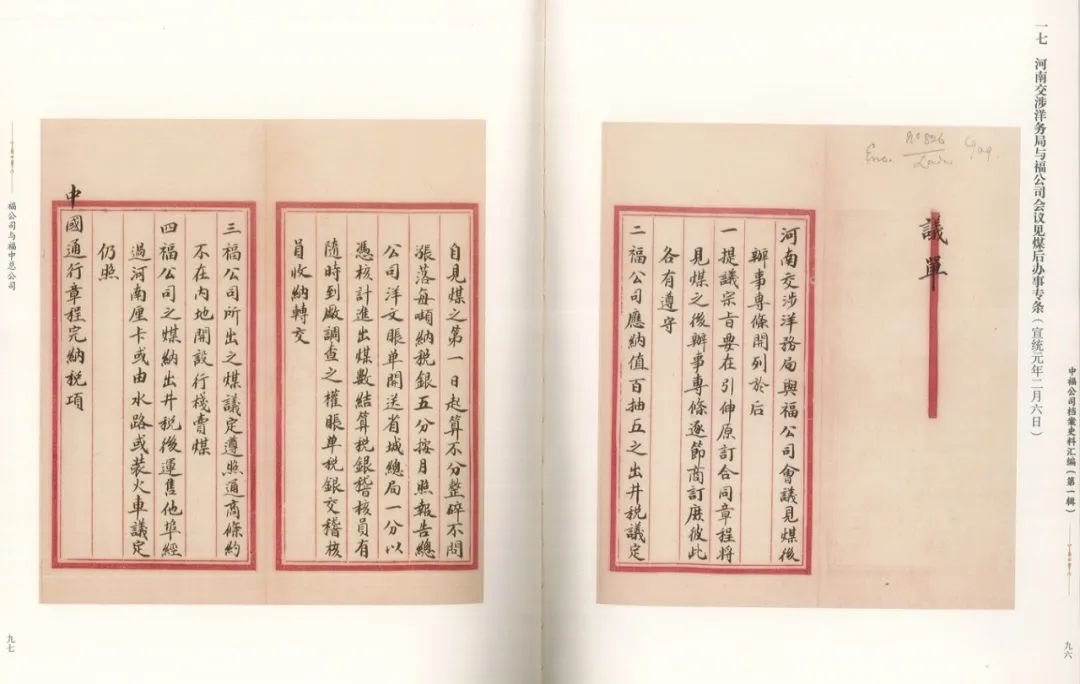 中福公司档案史料汇编（第一辑）
九六
一七 河南交涉洋务局与福公司会议见煤后办事专条（宣统元年二月六日）
Nº 826
議單
河南交涉洋務局與福公司會議見煤後
辦事專條開列於后
一提議宗旨要在引伸原訂合同章程將
見煤之後辦事專條逐節商訂庶彼此
各有遵守
二福公司應納值百抽五之出井稅議定
自見煤之第一日起算不分整碎不問
漲落每噸納稅銀五分按月照報告總
公司洋文賬單開送省城總局一分以
憑核計進出煤數結算稅銀稽核員有
隨時到廠調查之權賬單稅銀交稽核
員收納轉交
三福公司所出之煤議定遵照通商條約
不在內地開設行棧賣煤
四福公司之煤納出井稅後運售他埠經
過河南厘卡或由水路或裝火車議定
仍照
中國通行章程完納稅項
福公司与福中总公司
九七